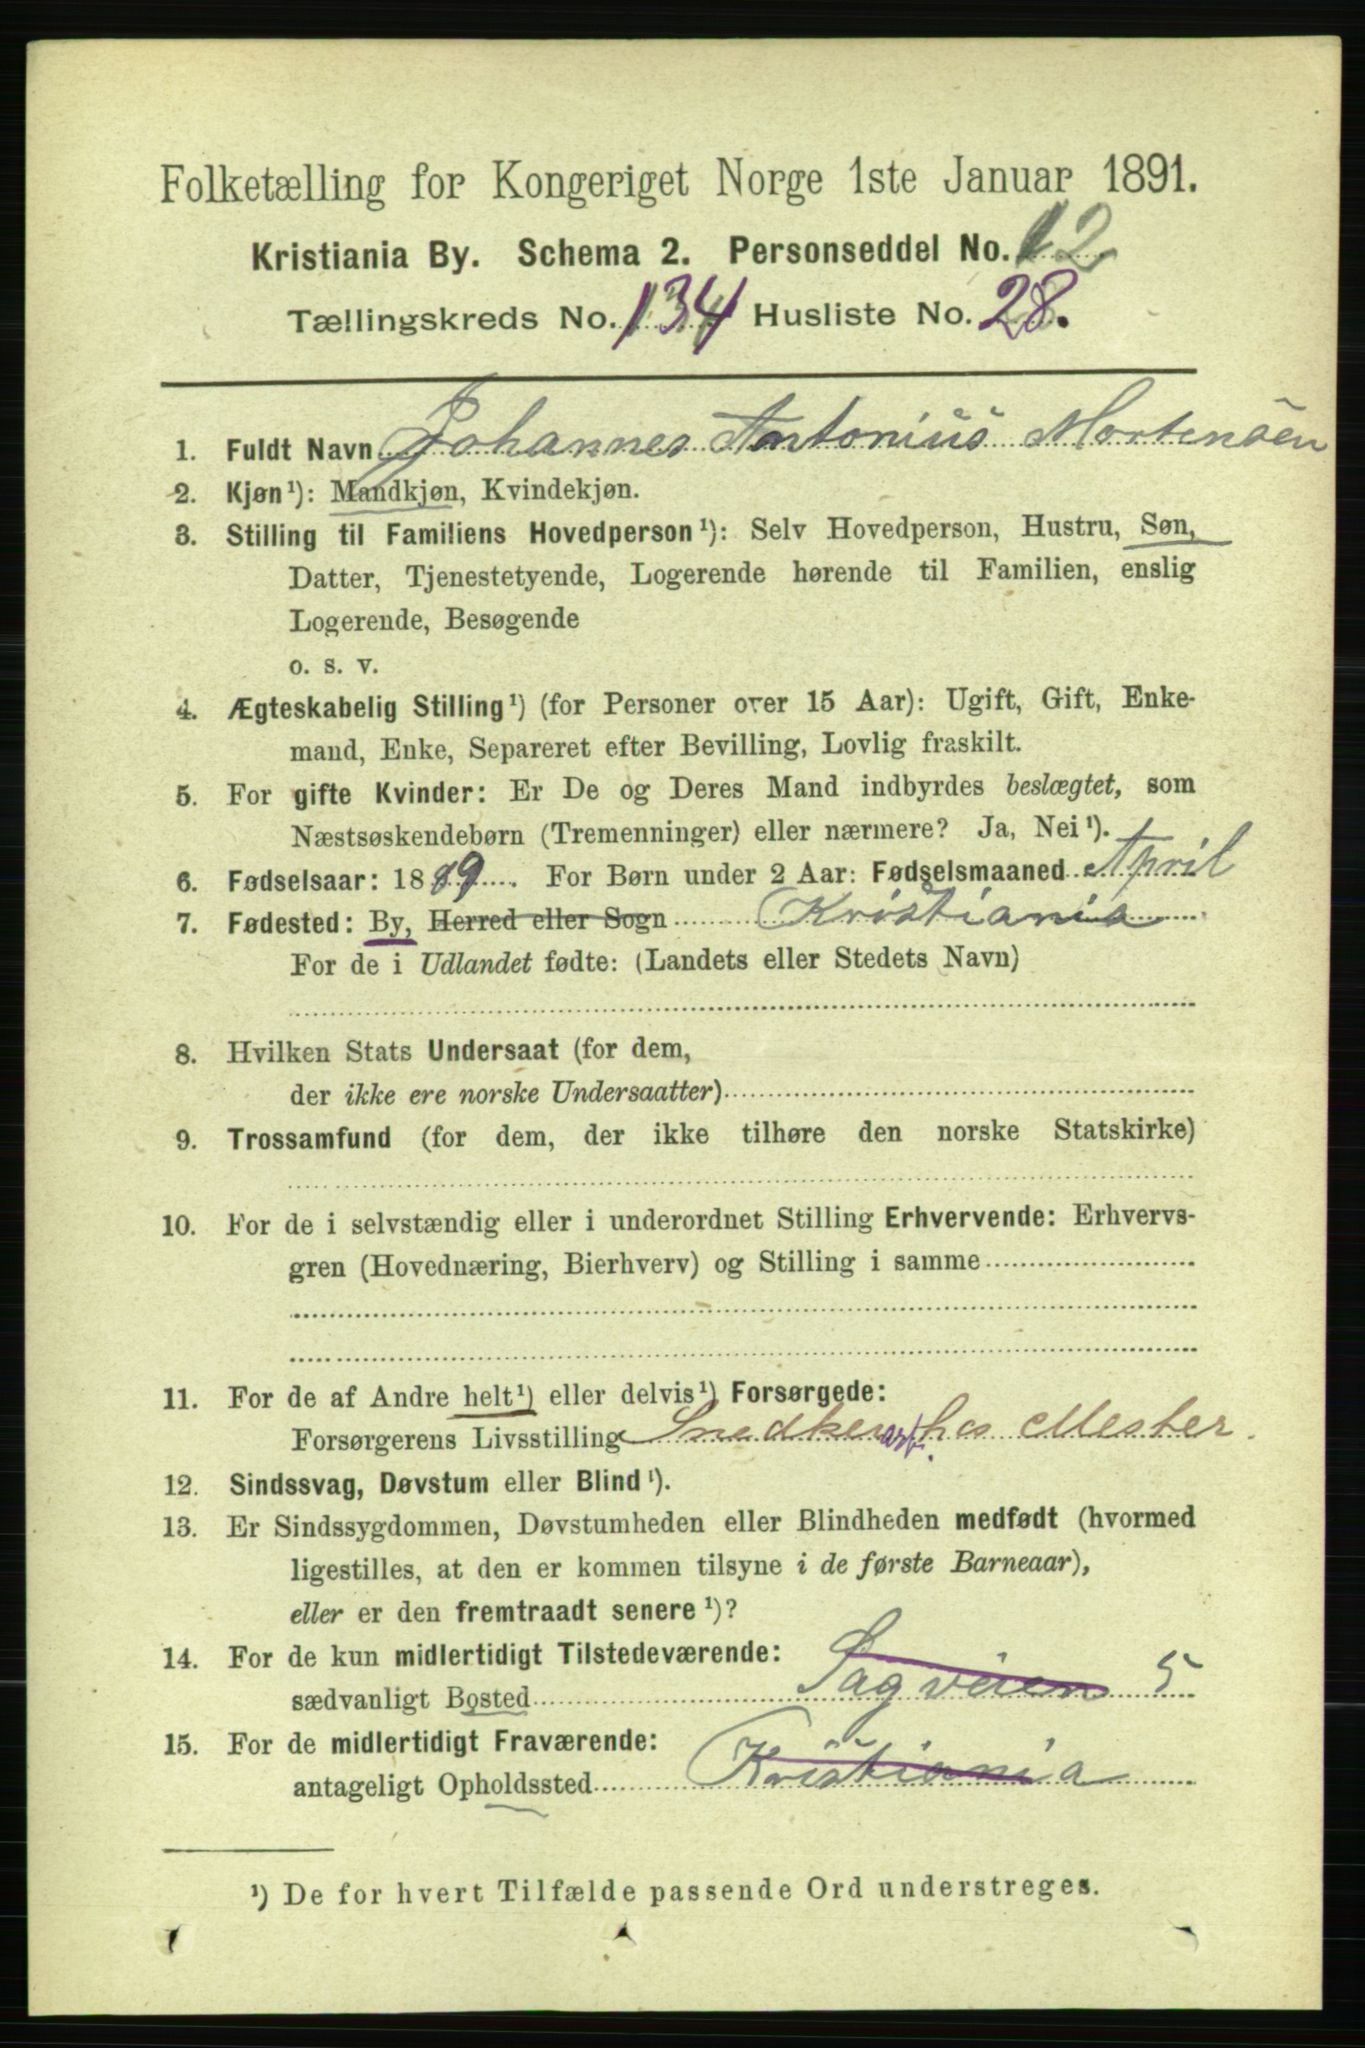 Folketælling for Kongeriget Norge 1ste Januar 1891.
Kristiania By. Schema 2. Personseddel No. 12
Tællingskreds No. 134 Husliste No. 28.
1. Fuldt Navn Johannes Antonius Mortensen
2. Kjøn¹): Mandkjøn, Kvindekjøn.
3. Stilling til Familiens Hovedperson¹): Selv Hovedperson, Hustru, Søn,
Datter, Tjenestetyende, Logerende hørende til Familien, enslig
Logerende, Besøgende
o. s. v.
4. Ægteskabelig Stilling¹) (for Personer over 15 Aar): Ugift, Gift, Enke-
mand, Enke, Separeret efter Bevilling, Lovlig fraskilt.
5. For gifte Kvinder: Er De og Deres Mand indbyrdes beslægtet, som
Næstsøskendebørn (Tremenninger) eller nærmere? Ja, Nei¹).
6. Fødselsaar: 1889. For Børn under 2 Aar: Fødselsmaaned April
7. Fødested: By, Herred eller Sogn Kristiania
For de i Udlandet fødte: (Landets eller Stedets Navn)
8. Hvilken Stats Undersaat (for dem,
der ikke ere norske Undersaatter)
9. Trossamfund (for dem, der ikke tilhøre den norske Statskirke)
10. For de i selvstændig eller i underordnet Stilling Erhvervende: Erhvervs-
gren (Hovednæring, Bierhverv) og Stilling i samme
11. For de af Andre helt¹) eller delvis¹) Forsørgede:
Forsørgerens Livsstilling Snedkerarb. hos Mester.
12. Sindssvag, Døvstum eller Blind¹).
13. Er Sindssygdommen, Døvstumheden eller Blindheden medfødt (hvormed
ligestilles, at den er kommen tilsyne i de første Barneaar),
eller er den fremtraadt senere¹)?
14. For de kun midlertidigt Tilstedeværende:
sædvanligt Bosted Sagveien 5
15. For de midlertidigt Fraværende:
antageligt Opholdssted Kristiania
¹) De for hvert Tilfælde passende Ord understreges.